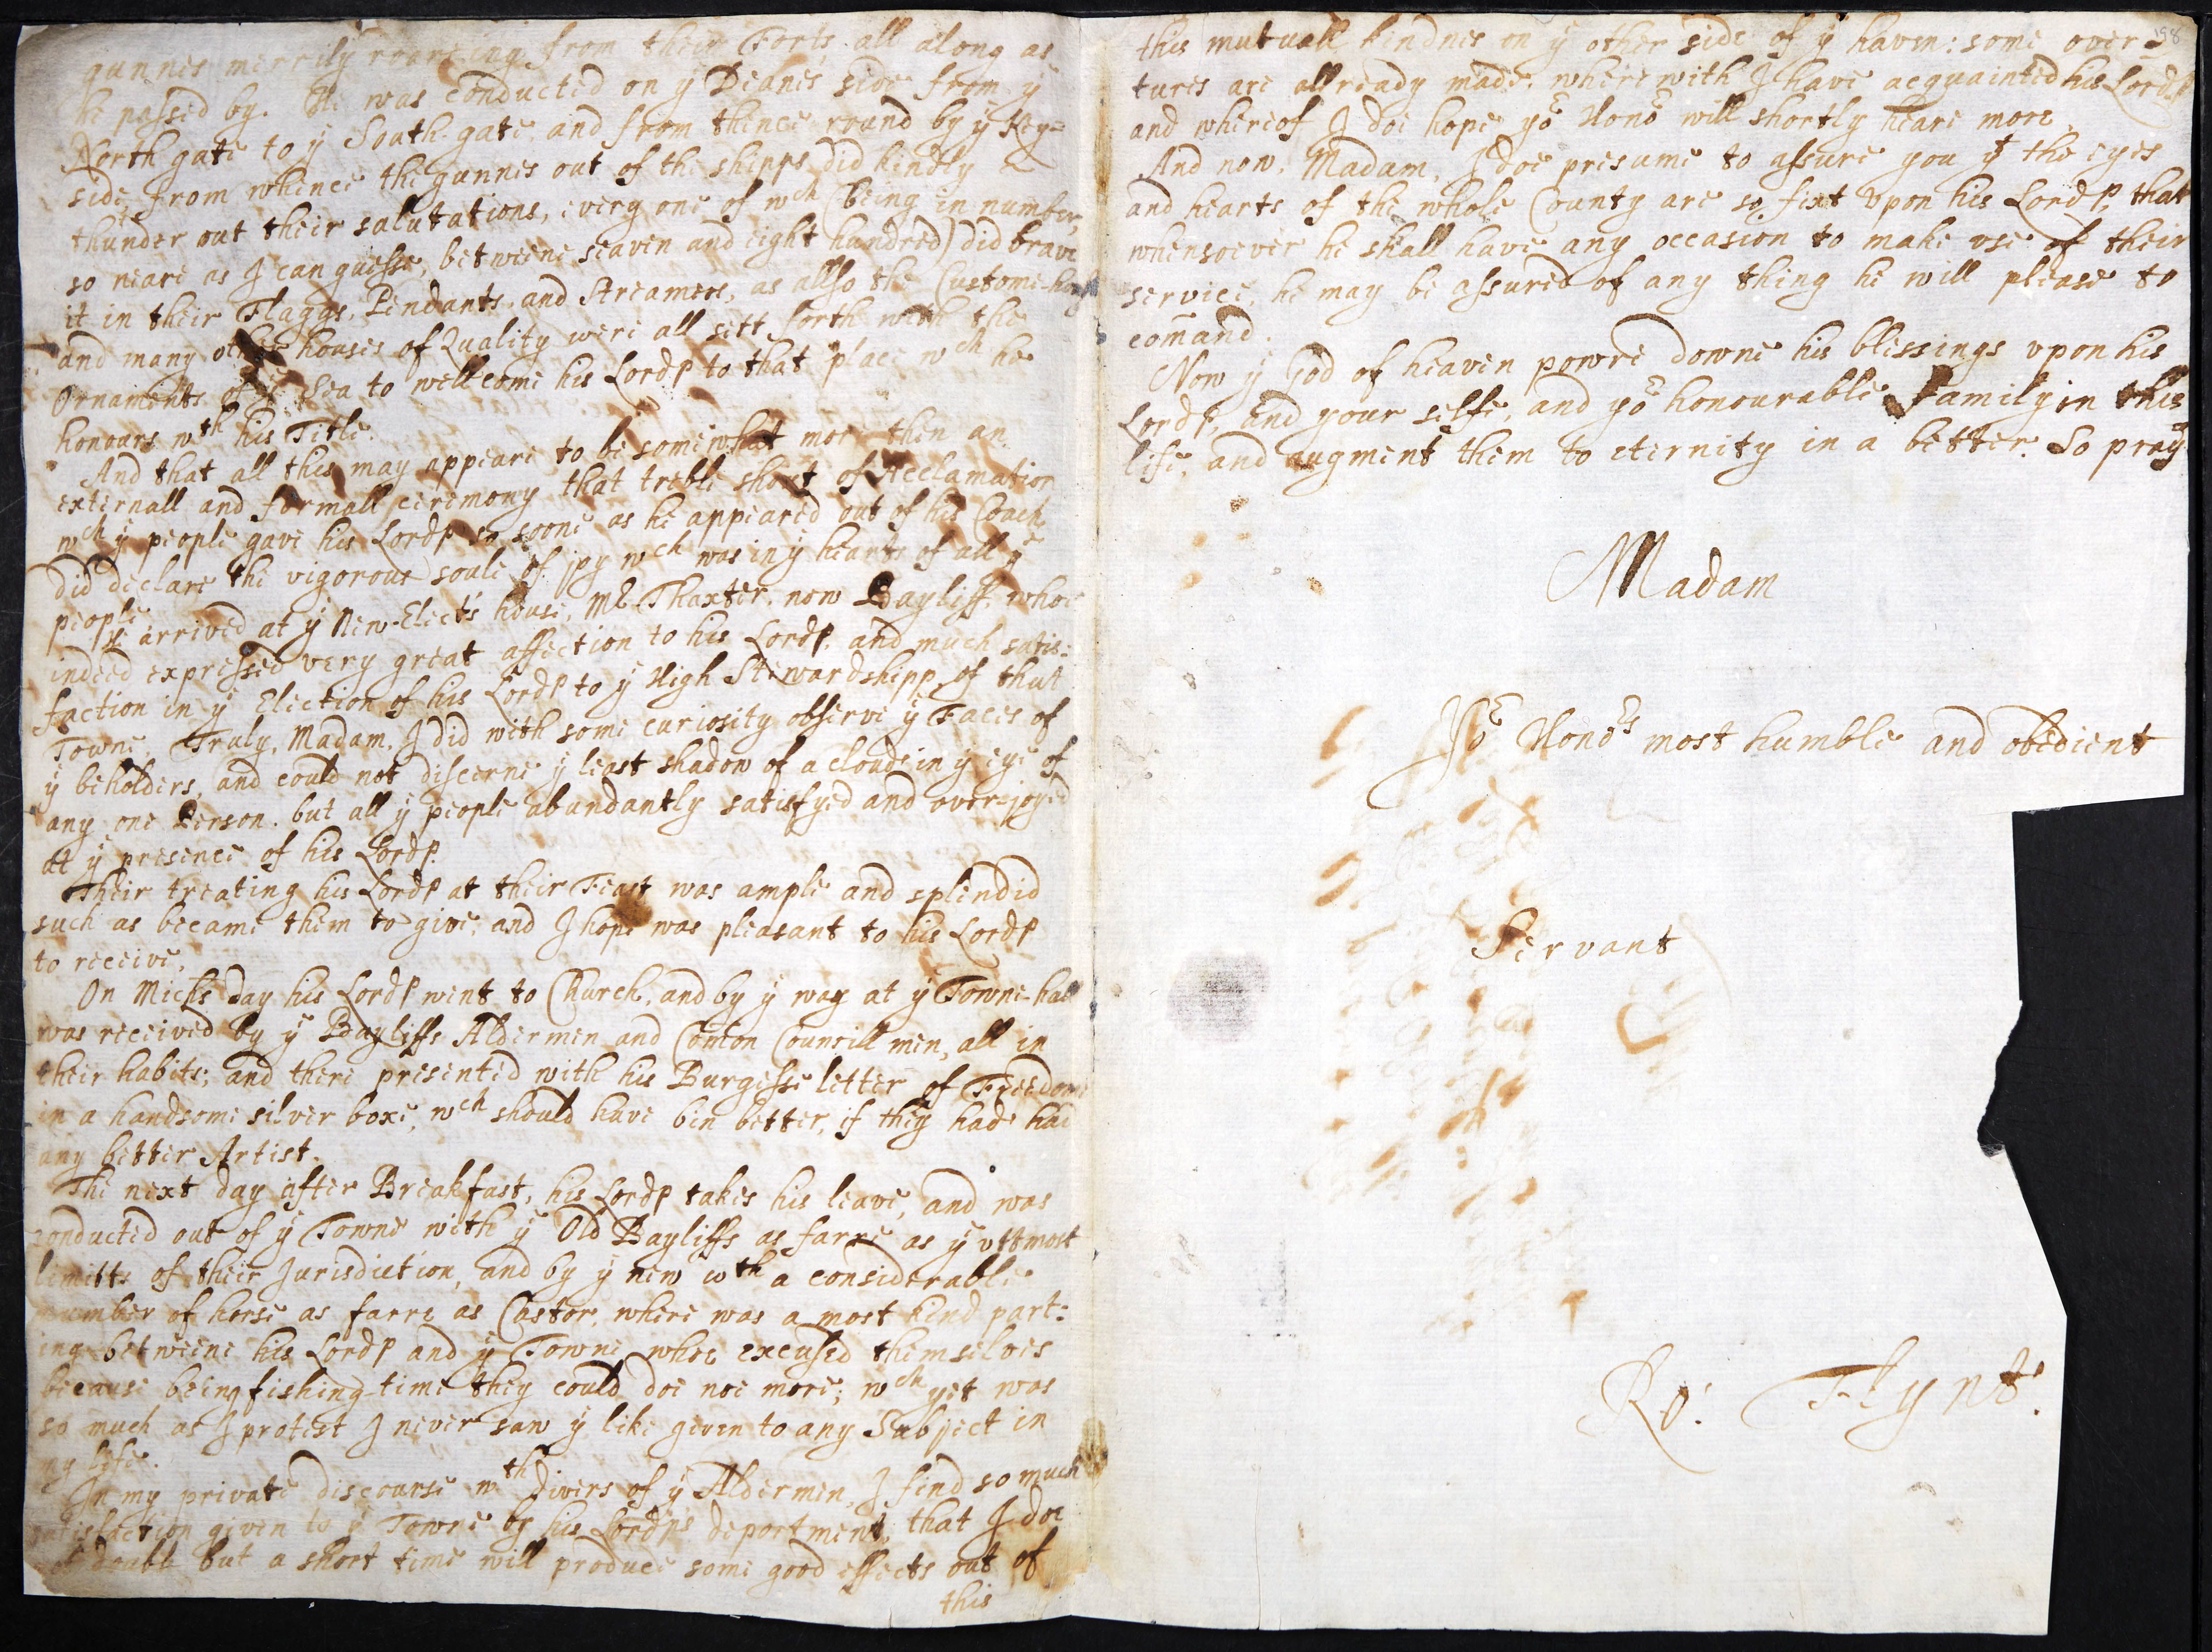 gunnes merrily roareing from their Forts all along as
he passed by. He was conducted on yͤ Deanes side from yͤ
North gate to yͤ South-gate, and from thence round by yͤ Key=
side, from whence the gunnes out of the shipps did kindly
thunder out their salutations, every one of wch (being in number,
so neare as I can guesse, betweene seaven and eight hundred) did brave
it in their Flaggs, Pendants, and Streamers, as allso the Custome-house
and many other houses of Quality were all sett forth with the
Ornaments of yͤ Sea to wellcome his Lordp to that place wch he
honours wth his Title.
And that all this may appeare to be somewhat more then an
externall and formall ceremony that treble shout of Acclamation
wch yͤ people gave his Lordp so soone as he appeared out of his Coach,
did declare the vigorous soule of joy wch was in yͤ hearts of all yͤ
people.
He arrived at yͤ New-Elect's house, Mr Thaxter, now Bayliff, whoe
indeed expressed very great affection to his Lordp, and much satis=
faction in yͤ Election of his Lordp to yͤ High Stewardshipp of that
Towne. Truly, Madam, I did with some curiosity observe yͤ Faces of
yͤ beholders, and could not discerne yͤ least shadow of a cloude in yͤ eye of
any one Person. but all yͤ people abundantly satisfyed and over=joyed
at yͤ presence of his Lordp.
Their treating his Lordp at their Feast was ample and splendid
such as became them to give, and I hope was pleasant to his Lordp
to receive.
On Michs day his Lordp went to Church, and by yͤ way at yͤ Towne-hall
was received by yͤ Bayliffs Aldermen and Com̃on Councill men, all in
their habits; and there presented with his Burgesse letter of Freedome
in a handsome silver boxe, wch should have bin better, if they had had
any better Artist.
The next day after Breakfast, his Lordp takes his leave, and was
conducted out of yͤ Towne with yͤ Old Bayliffs as farre as yͤ vttmost
limitts of their Jurisdiction, and by yͤ new wth a considerable
number of horse as farre as Castor, where was a most kind part=
ing betweene his Lordp and yͤ Towne, whoe excused themselves
because being fishing-time they could doe noe more; wch yet was
so much as I protest I never saw yͤ like given to any Subject in
my life.
In my private discourse wth divers of yͤ Aldermen, I find so much
satisfaction given to yͤ Towne by his Lordps deportment, that I doe
not doubt but a short time will produce some good effects out of
this
198
this mutuall kindnes on yͤ other side of yͤ haven: some over=
tures are allready made, wherewith I have acquainted his Lordp
and whereof I doe hope yor Honor will shortly heare more.
And now, Madam, I doe presume to assure you yt the eyes
and hearts of the whole County are so fixt vpon his Lordp, that
whensoever he shall have any occasion to make vse of their
service, he may be assured of any thing he will please to
com̃and.
Now yͤ God of heaven powre downe his blessings vpon his
Lordp, and your selfe, and yor honourable Family in this
life, and augment them to eternity in a better. So prays
Madam
Yor Honors most humble and obedient
Servant
Ro: Flynt.